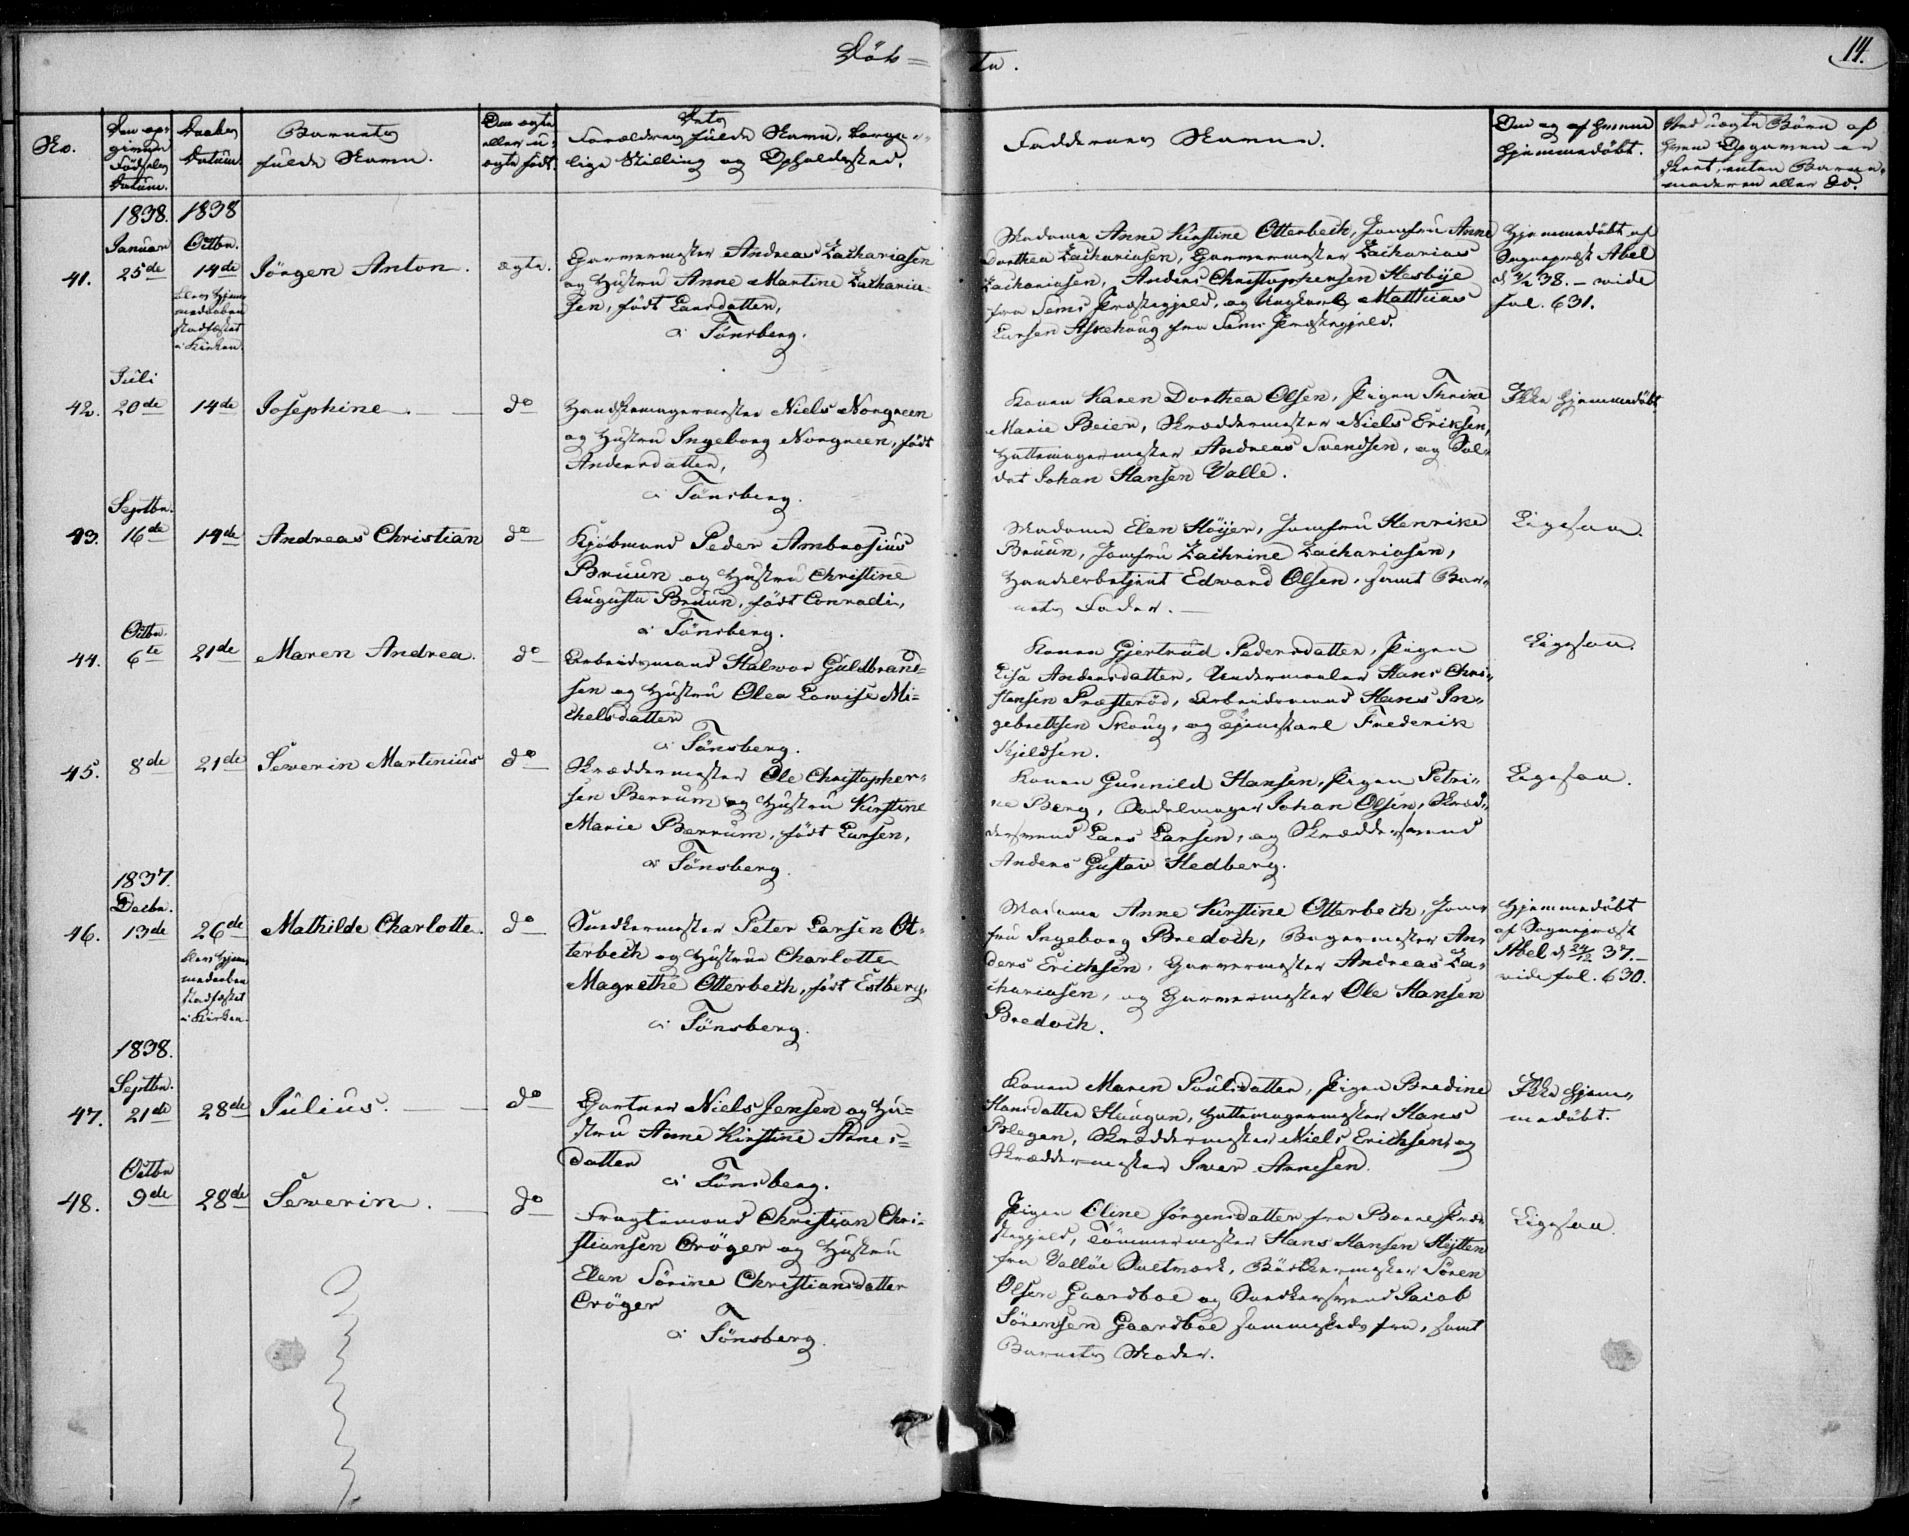 Döb=
te.
14.
No.
Den op=
givne
Fødsels
Datum.
Daabens
Datum.
Barnets
fulde Navn.
Om ægte
eller u=
ægte født.
Dets
Forældres fulde Navn, borger=
lige Stilling og Opholdssted.
Faddernes Navne.
Om og af hvem
hjemmedöbt.
Ved uægte Børn af
hvem Opgaven er
skeet, enten Barne=
moderen eller &c.
1838. 1838
Januar Octbr.
41. 25de 14de Jörgen Anton. ægte.
blev hjem=
medaaben
stadfæstet
i Kirken.
Garvermester Andreas Zachariasen
og Hustru Anne Martine Zacharia=
sen, født Larsdatter,
i Tönsberg.
Madame Anne Kirstine Otterbech, Jomfru Anne
Dorthea Zachariasen, Garvermester Zacharias
Zachariasen, Anders Christophersen Hesbye
fra Sems Præstegjeld, og Ungkarl Matthias
Larsen Askehoug fra Sems Præstegjeld.
Hjemmedöbt af
Sognepræst Abel
38. – vide
fol. 631.
Juli
42. 20de 14de Josephine. do
Handskemagermester Niels Norgreen
og Hustru Ingeborg Norgreen, født
Andersdatter,
i Tönsberg.
Konen Karen Dorthea Olsen, Pigen Thrine
Marie Beier, Skræddermester Niels Eriksen,
Hattemagermester Andreas Svendsen, og Sol=
dat Johan Hansen Valle.
Ikke hjemmedöbt
Septbr.
43. 16de 14de Andreas Christian do
Kjöbmand Peder Ambrosius
Bruun og Hustru Christine
Augusta Bruun, født Conradi,
i Tönsberg.
Madame Elen Höyer, Jomfru Henrike
Bruun, Jomfru Zachrine Zachariasen,
Handelsbetjent Edward Olsen, samt Bar=
nets Fader.
Ligesaa.
Octbr.
44. 6te 21de Maren Andrea. do
Arbeidsmand Halvor Guldbrand=
sen og Hustru Olea Lovise Mi=
chelsdatter
i Tönsberg.
Konen Gjertrud Pedersdatter, Pigen
Lisa Andersdatter, Undermaaler Hans Chri=
stensen Præsterød, Arbeidsmand Hans In=
gebretsen Skoug, og Tjenestkarl Frederik
Kjeldsen.
Ligesaa.
45. 8de 21de Severin Martinius do
Skræddermester Ole Christopher=
sen Berrum og Hustru Kirstine
Marie Berrum, født Larsen,
i Tönsberg.
Konen Gunnild Hansen, Pigen Petri=
ne Berg, Sadelmager Johan Olsen, Skræd=
dersvend Lars Larsen, og Skræddersvend
Anders Gustav Hedberg.
Ligesaa.
1837.
Decbr.
46. 13de 26de Mathilde Charlotte. do
blev hjem=
medaaben
stadfæstet
i Kirken.
Snedkermester Peter Larsen Ot=
terbech og Hustrue Charlotte
Magrethe Otterbech, født Estberg,
i Tönsberg.
Madame Anne Kirstine Otterbech, Jom=
fru Ingeborg Bredoch, Bagermester An=
ders Erichsen, Garvermester Andreas Za=
chariasen, og Garvermester Ole Hansen
Bredoch.
Hjemmedöbt
af Sognepræst
Abel d 24/12 37. –
vide fol. 630.
1838.
Septbr.
47. 21de 28de Julius. do
Gartner Niels Jensen og Hu=
stru Anne Kirstine Arnes=
datter
i Tönsberg.
Konen Maren Poulsdatter, Pigen Bredine
Hansdatter Haugan, Hattemagermester Hans
Blegen, Skræddermester Niels Erichsen, og
Skræddermester Iver Arnesen.
Ikke hjem=
medöbt.
Octbr
48. 9de 28de Severin. do
Fragtemand Christian Chri=
stiansen Cröger og Hustru
Elen Sörine Christiansdatter
Cröger
i Tönsberg.
Pigen Eline Jörgensdatter fra Borre Præ=
stegjeld, Tömmermester Hans Hansen Hÿtten
fra Valløe Saltværk, Bödkermester Sören
Olsen Gaardboe og Snedkersvend Jacob
Sörensen Gaardboe sammesteds fra, samt
Barnets Moder.
Ligesaa.